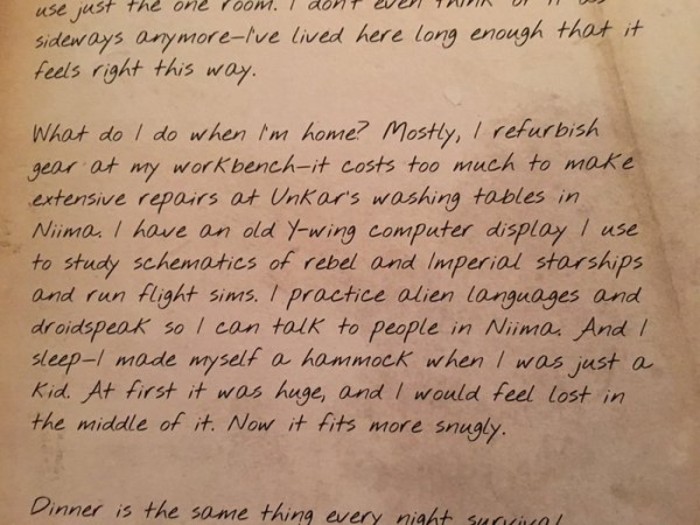 use just the one room. I don't even think of it as
sideways anymore—I've lived here long enough that it
feels right this way.
What do I do when I'm home? Mostly, I refurbish
gear at my workbench—it costs too much to make
extensive repairs at Unkar's washing tables in
Niima. I have an old Y-wing computer display I use
to study schematics of rebel and Imperial starships
and run flight sims. I practice alien languages and
droidspeak so I can talk to people in Niima. And I
sleep—I made myself a hammock when I was just a
kid. At first it was huge, and I would feel lost in
the middle of it. Now it fits more snugly.
Dinner is the same thing every night survival